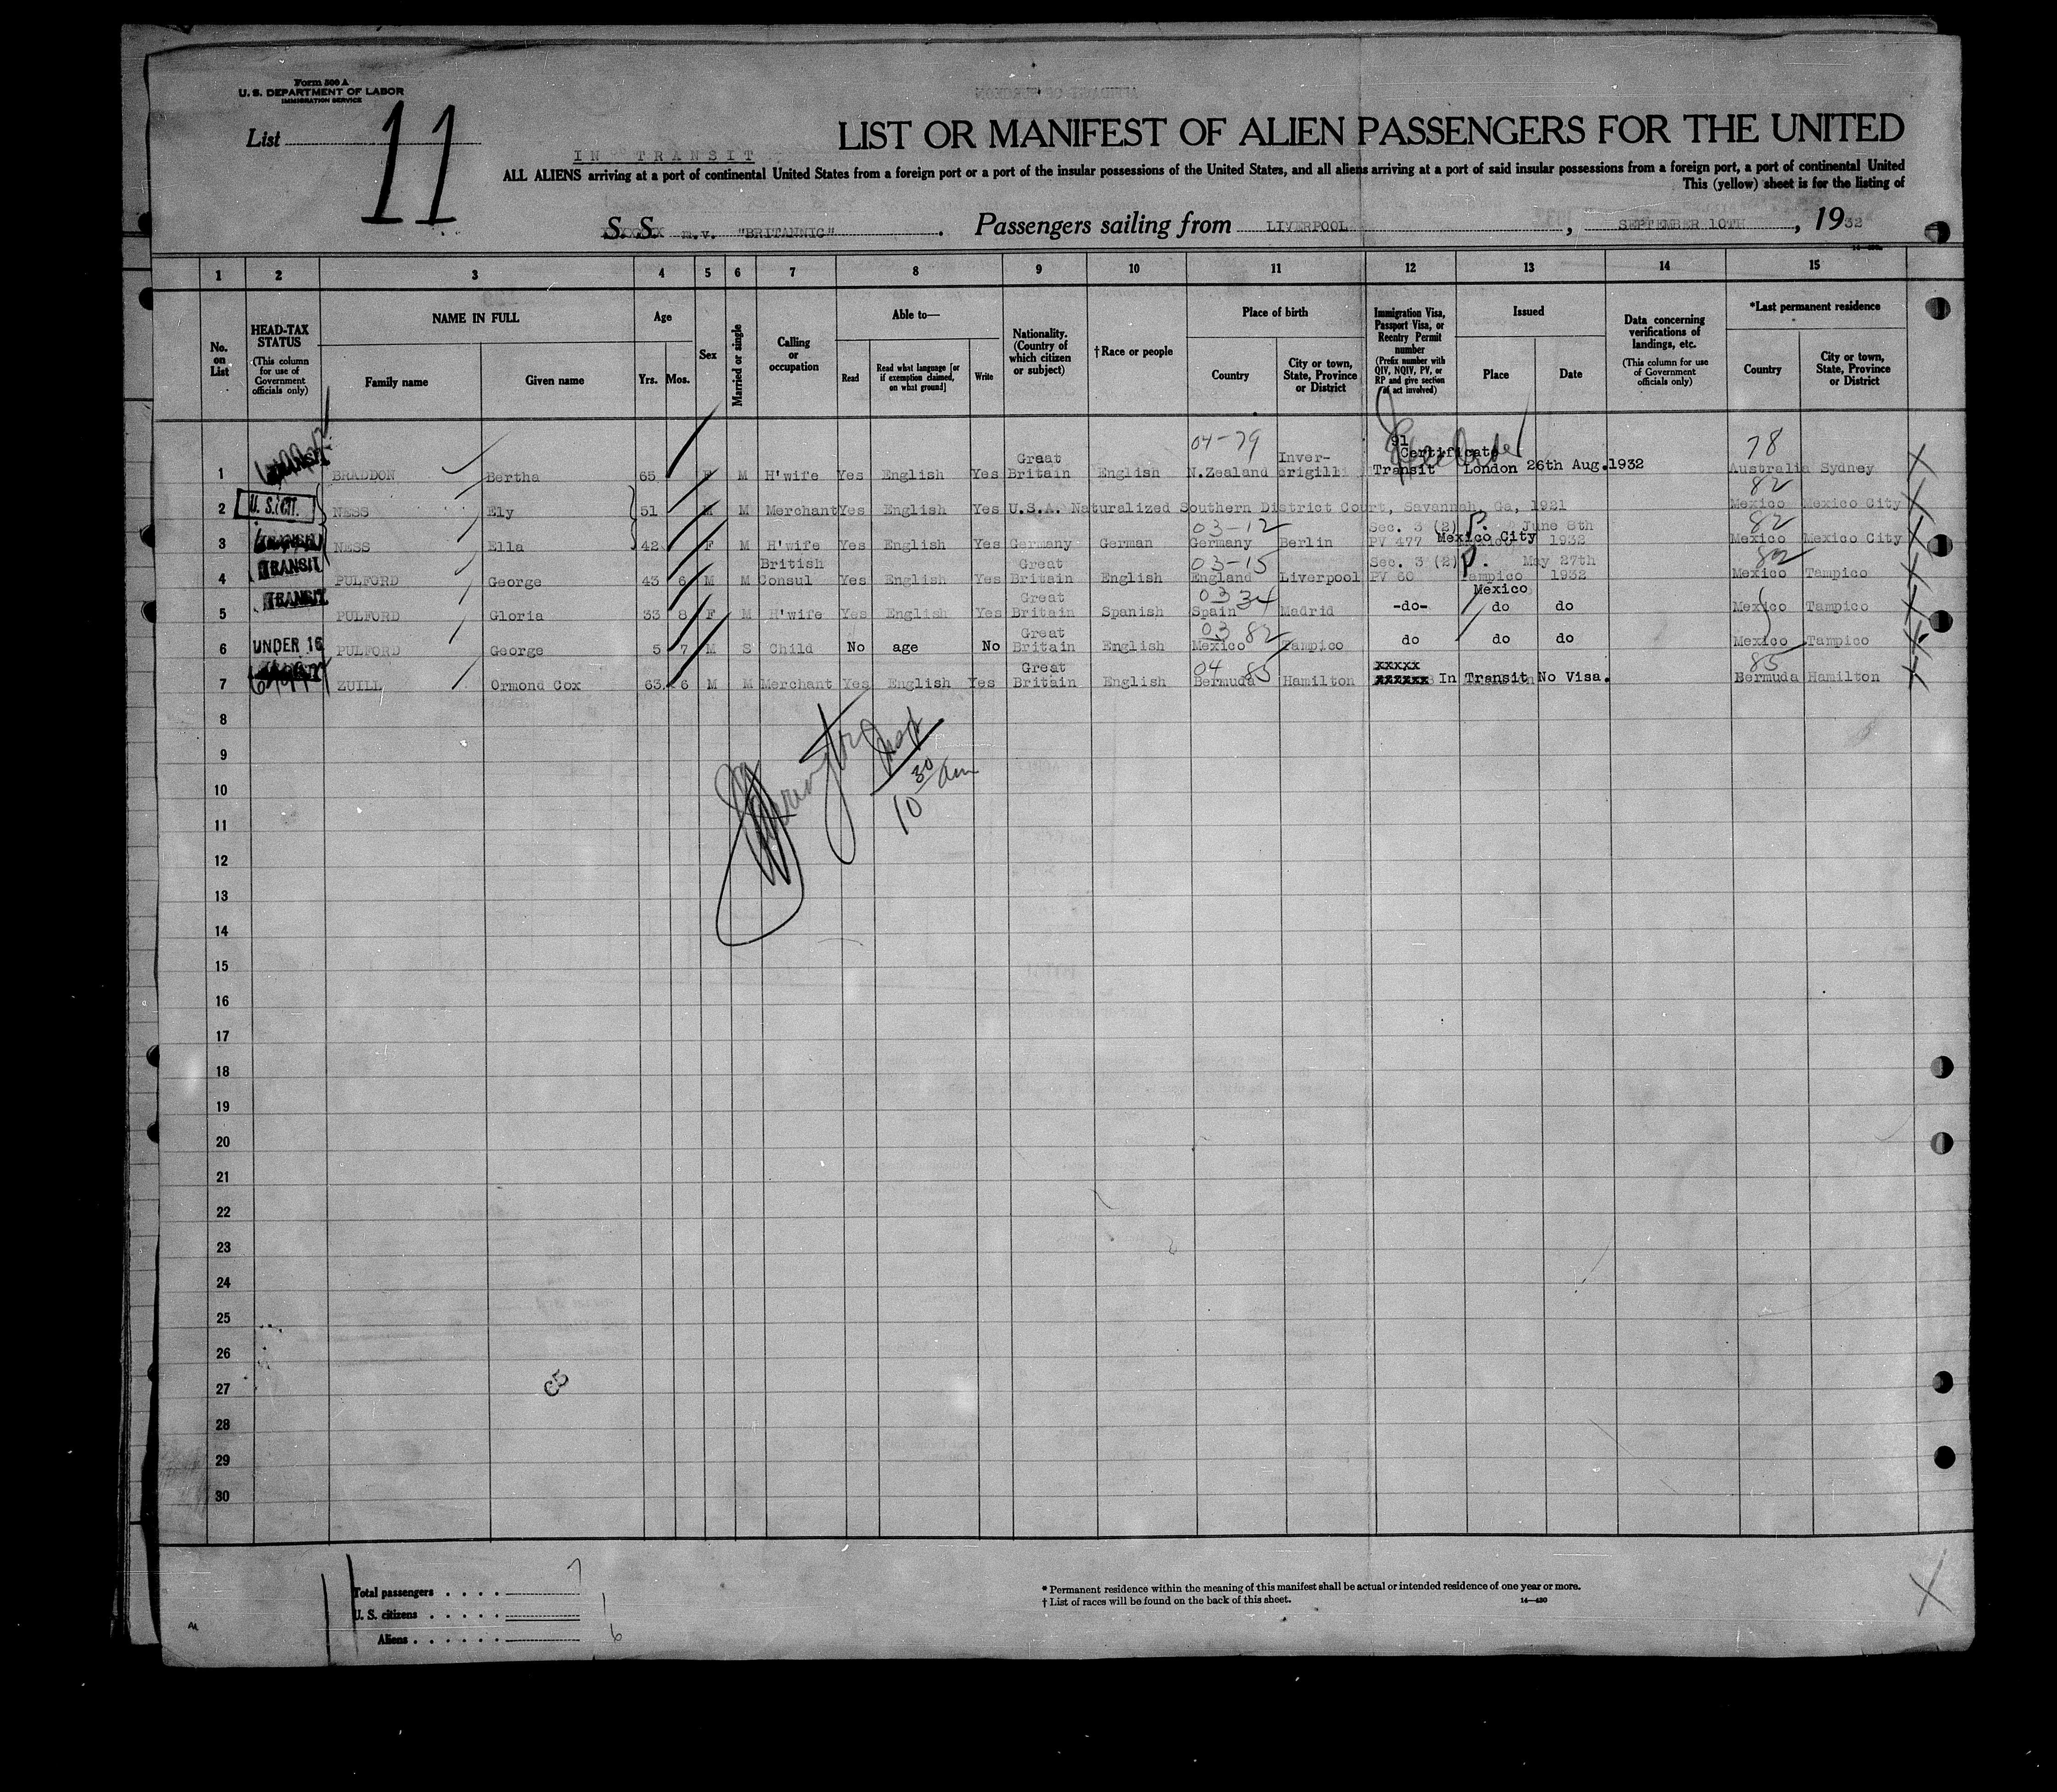 Form 500 A
U. S. DEPARTMENT OF LABOR
IMMIGRATION SERVICE
List 11
LIST OR MANIFEST OF ALIEN PASSENGERS FOR THE UNITED
IN TRANSIT
ALL ALIENS arriving at a port of continental United States from a foreign port or a port of the insular possessions of the United States, and all aliens arriving at a port of said insular possessions from a foreign port, a port of continental United
This (yellow) sheet is for the listing of
S. S. m.v. "BRITANNIC". Passengers sailing from LIVERPOOL, SEPTEMBER 10TH, 1932
1 2 3 4 5 6 7 8 9 10 11 12 13 14 15
No. on List
HEAD-TAX STATUS
(This column for use of Government officials only)
NAME IN FULL
Family name
Given name
Age
Yrs. Mos.
Sex
Married or single
Calling or occupation
Able to—
Read
Read what language [or if exemption claimed, on what ground]
Write
Nationality. (Country of which citizen or subject)
†Race or people
Place of birth
Country
City or town, State, Province or District
Immigration Visa, Passport Visa, or Reentry Permit number
(Prefix number with QIV, NQIV, PV, or RP and give section of act involved)
Issued
Place
Date
Data concerning verifications of landings, etc.
(This column for use of Government officials only)
*Last permanent residence
Country
City or town, State, Province or District
04-79 91 78
Great Inver- Certificate
1 BRADDON Bertha 65 F M H'wife Yes English Yes Britain English N.Zealand Transit London 26th Aug.1932 Australia Sydney
82
2 U.S. CIT. NESS Ely 51 M M Merchant Yes English Yes U.S.A. Naturalized Southern District Court, Savannah, Ga, 1921 Mexico Mexico City
03-12 Sec. 3 (2) P. June 8th 82
3 NESS Ella 42 F M H'wife Yes English Yes Germany German Germany Berlin PV 477 Mexico City 1932 Mexico Mexico City
TRANSIT British Great 03-15 Sec. 3 (2) P. May 27th 82
4 PULFORD George 43 6 M M Consul Yes English Yes Britain English England Liverpool PV 60 Tampico 1932 Mexico Tampico
TRANSIT Great 03 34 Mexico
5 PULFORD Gloria 33 8 F M H'wife Yes English Yes Britain Spanish Spain Madrid -do- do do Mexico Tampico
Great 03 82
6 UNDER 16 PULFORD George 5 7 M S Child No age No Britain English Mexico Tampico do do do Mexico Tampico
Great 04 85 xxxxx 85
7 ZUILL Ormond Cox 63 6 M M Merchant Yes English Yes Britain English Bermuda Hamilton xxxxxx In Transit No Visa. Bermuda Hamilton
8
9
10
10 30 am
11
12
13
14
15
16
17
18
19
20
21
22
23
24
25
26
27
28
29
30
Total passengers . . . . 7
U. S. citizens . . . . . 1
Aliens . . . . . . 6
* Permanent residence within the meaning of this manifest shall be actual or intended residence of one year or more.
† List of races will be found on the back of this sheet.
14—430